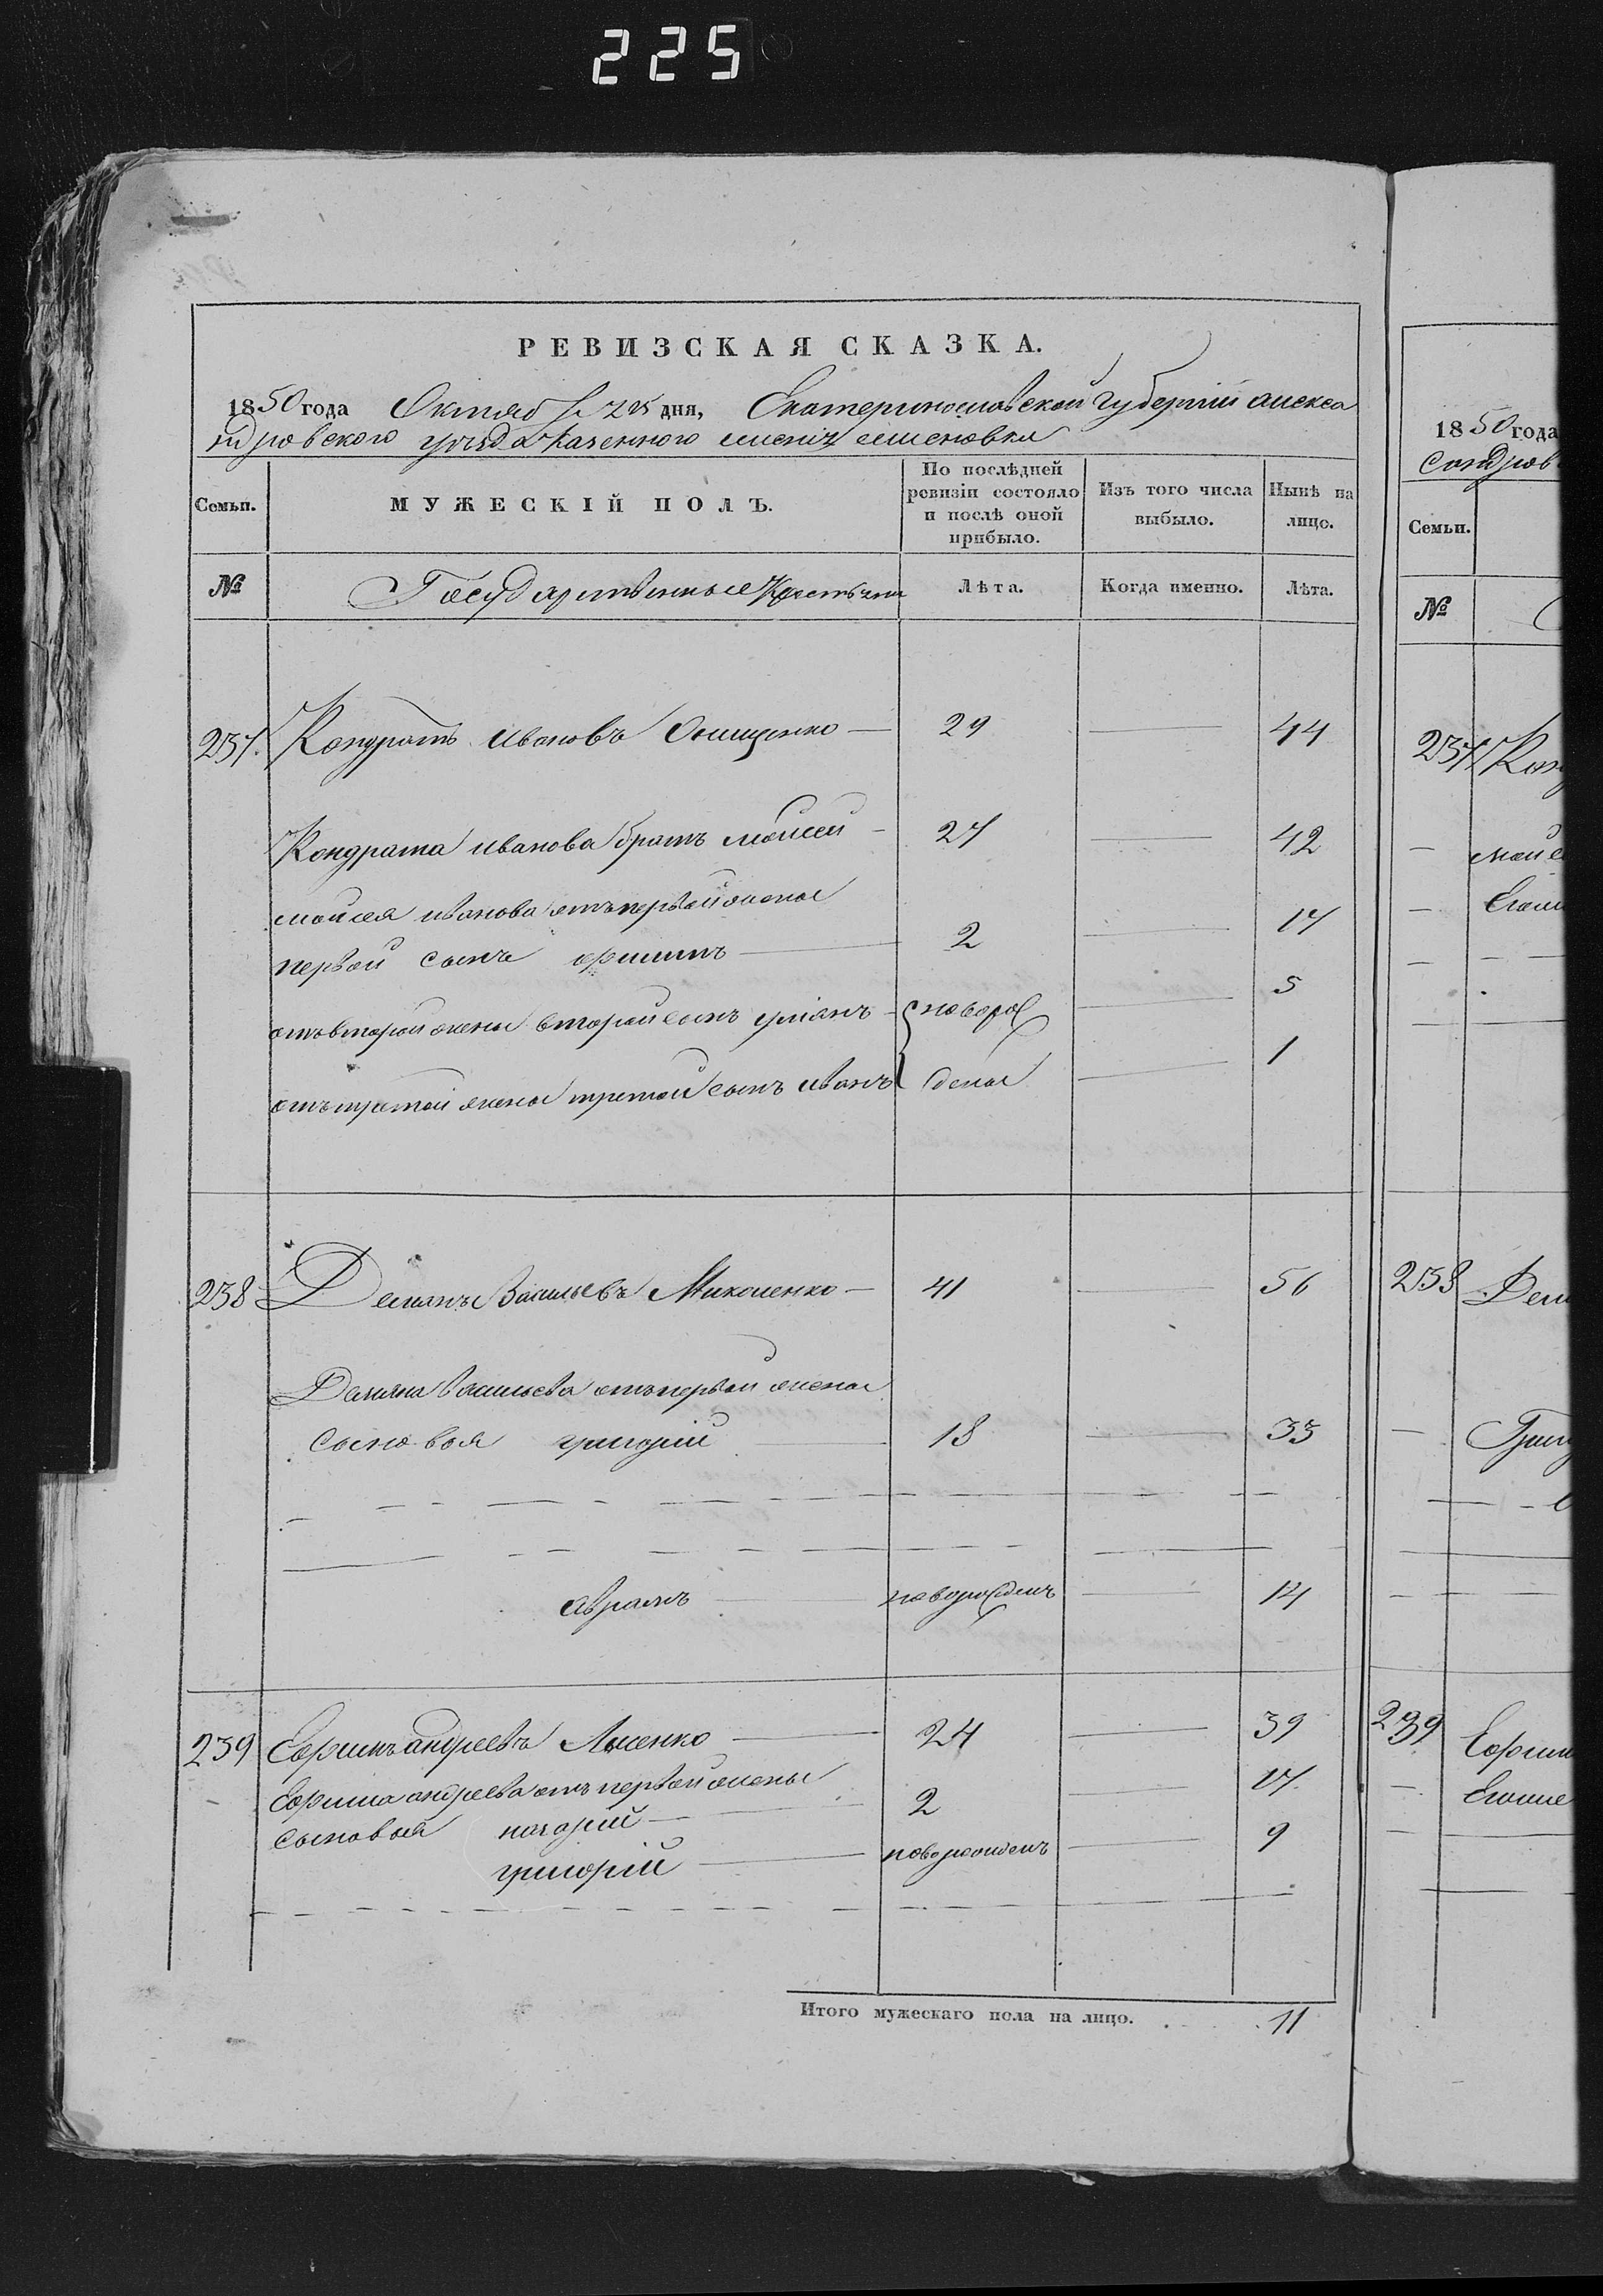 225
РЕВИЗСКАЯ СКАЗКА.
1850 года Октяб дня, Екатеринославской губернии алекса
ндровского уезда казенного имения
Семьи.
МУЖЕСКІЙ ПОЛЪ.
По послѣдней ревизіи состояло и послѣ оной прибыло.
Изъ того числа выбыло.
Нынѣ на лицо.
№ Государственные Крестьяни Лѣта. Когда именно. Лѣта.
237. Кондратъ Ивановъ Онищенко — 29 — 44
Кондрата иванова братъ мойсей — 27 — 42
мойсея иванова отъ первой жены
первой сынъ — 2 — 17
отъ второй жены второй сынъ — новорож — 5
отъ третой жены третой сынъ иванъ дены — 1
238 Демянъ Васильевъ Миколенко — 41 — 56
Демяна Васильева отъ первой жены
сыновья григорий — 18 — 33
аврамъ — новорожденъ — 14
239 Ефримъ андреевъ Лысенко — 24 — 39
Ефрима андреева отъ первой жены
сыновья — 2 — 17
григорій — новорожденъ — 9
Итого мужескаго пола на лицо. 11
1850 года
сандров
Семьи.
№
237
238
239